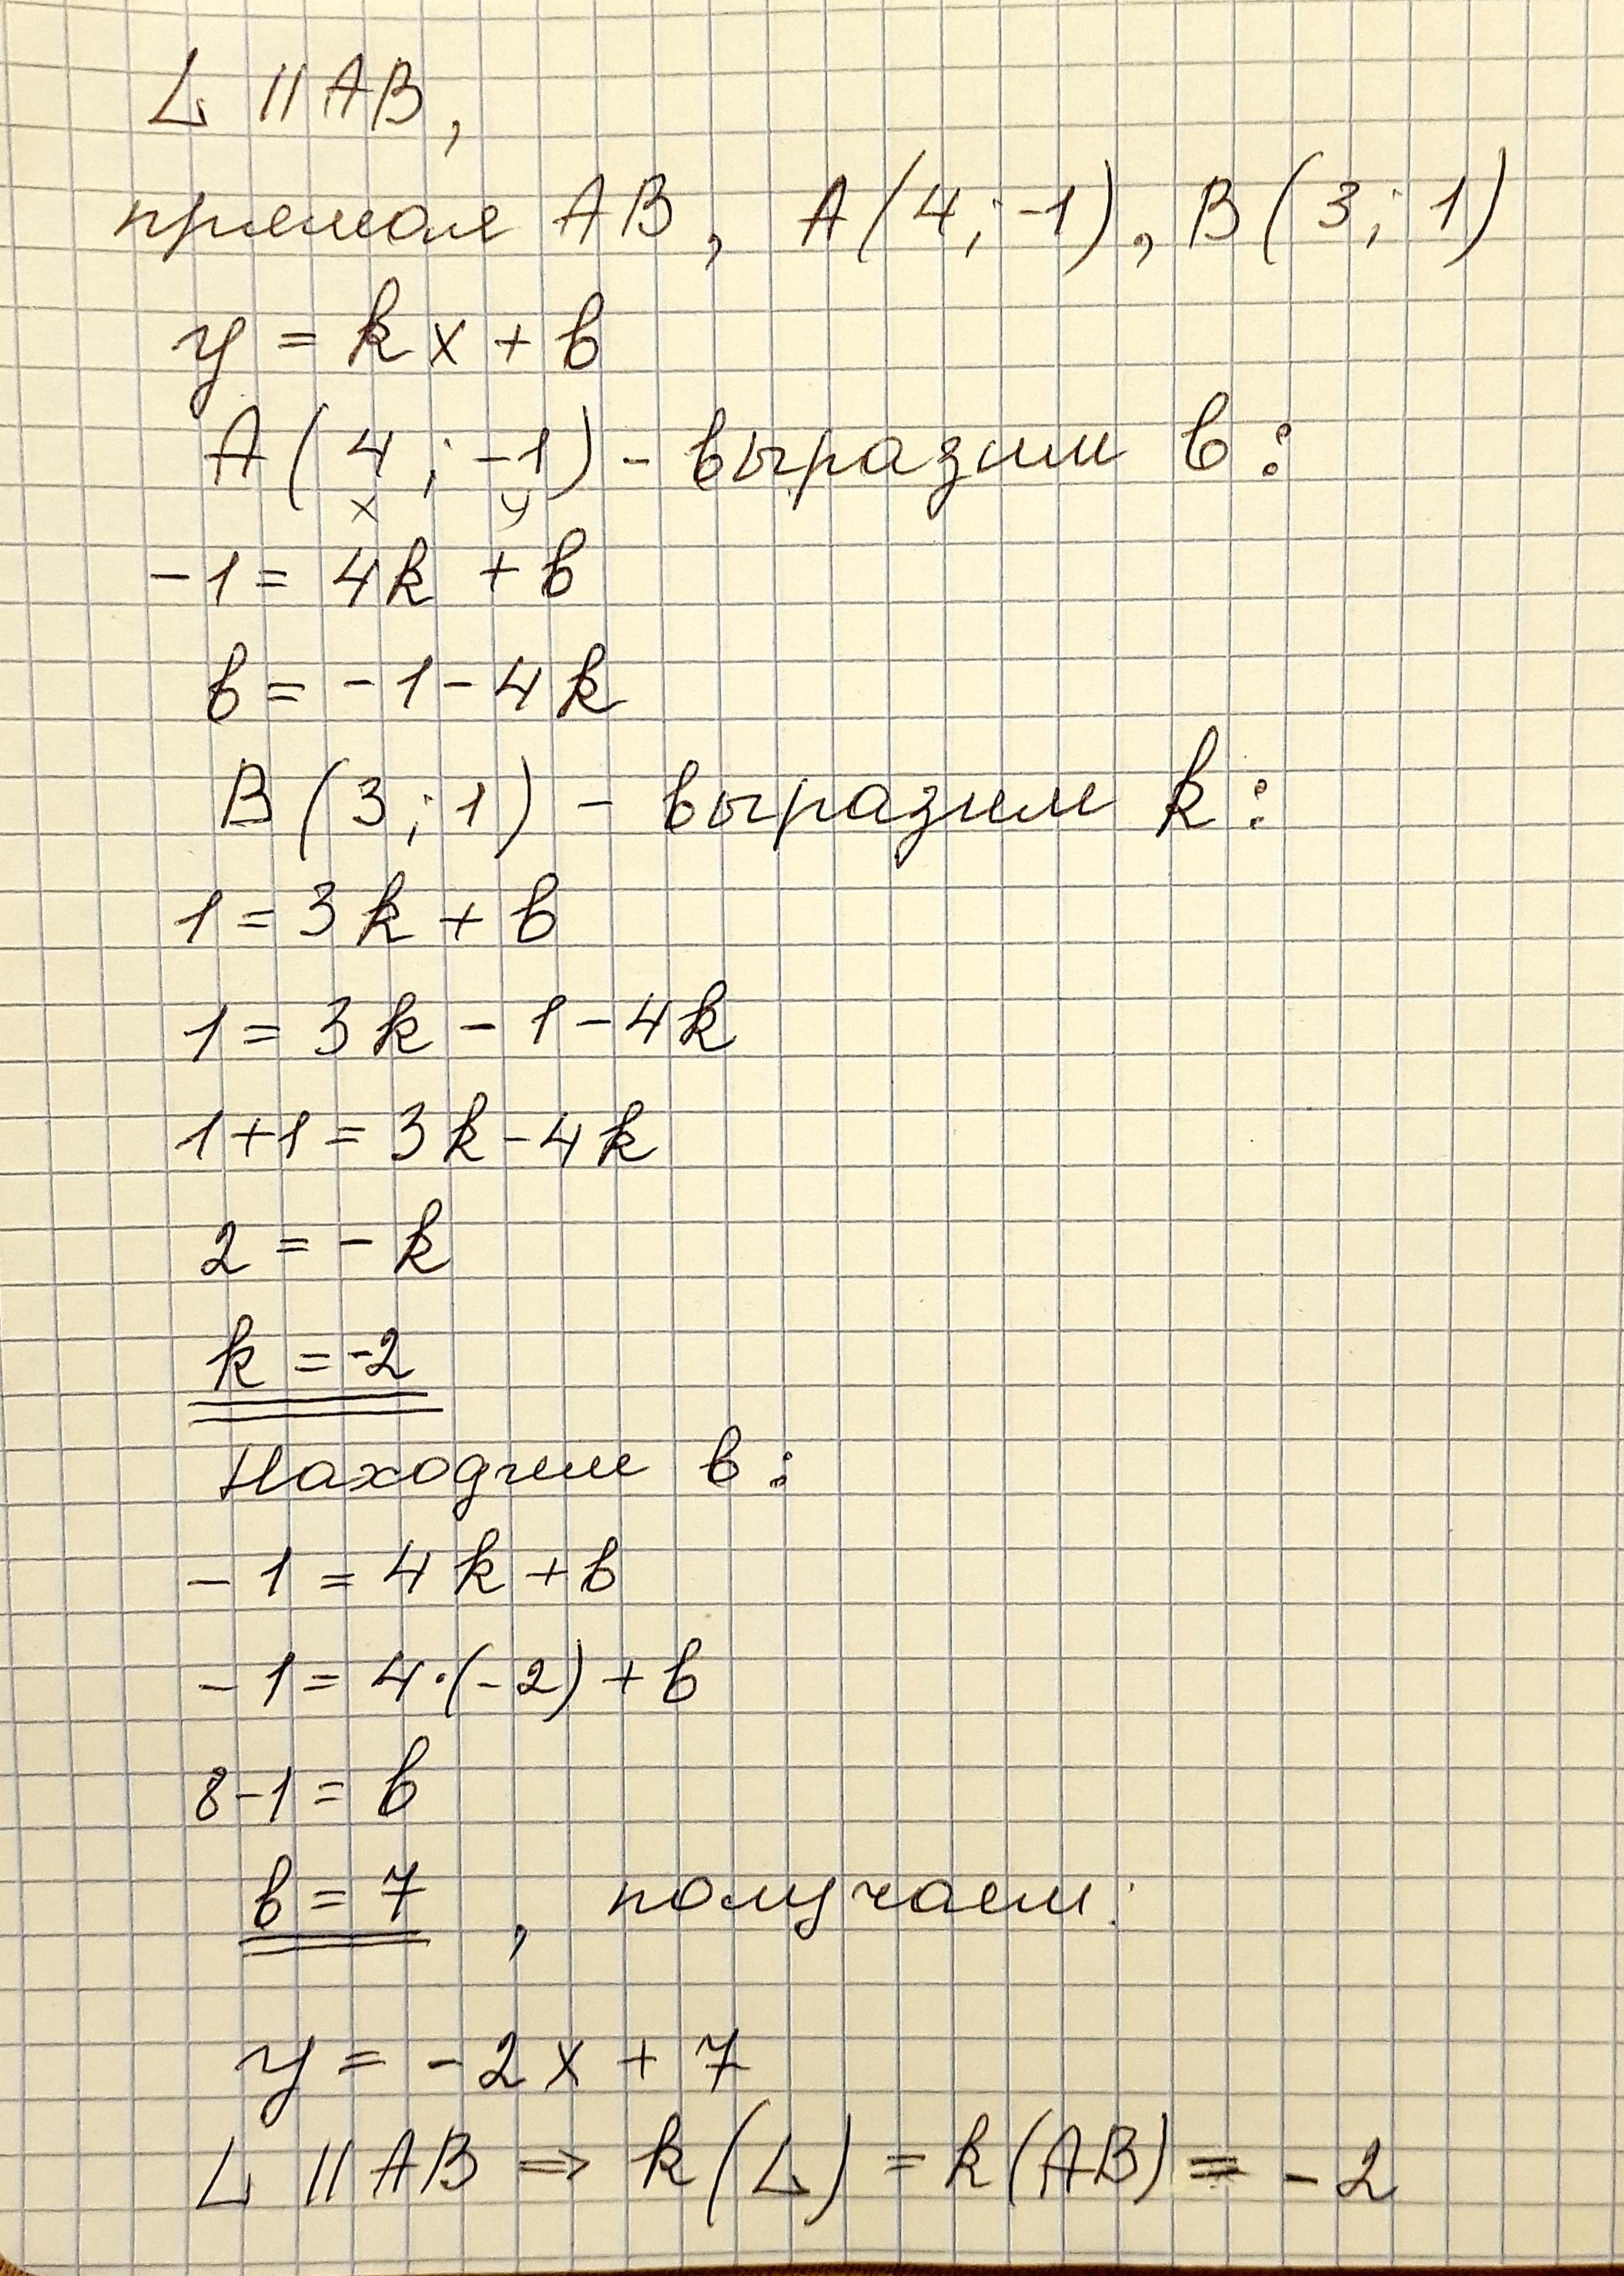 L || AB,
прямая AB, A(4; -1), B(3; 1)
y = kx + b
A(4; -1) - выразим b:
x y
-1 = 4k + b
b = -1 - 4k
B(3; 1) - выразим k:
1 = 3k + b
1 = 3k - 1 - 4k
1+1 = 3k - 4k
2 = - k
k = -2
Находим b:
- 1 = 4k + b
- 1 = 4·(-2) + b
8-1 = b
b = 7, получаем:
y = -2x + 7
L || AB ⇒ k(L) = k(AB) = -2